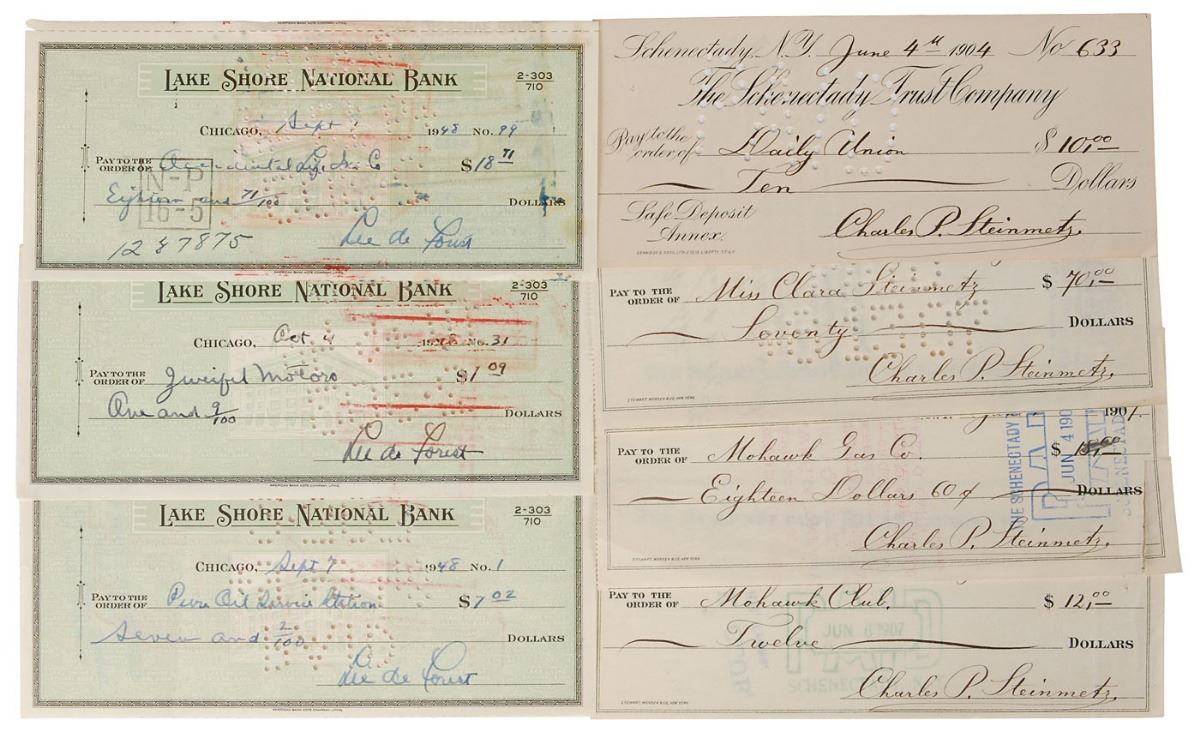 LAKE SHORE NATIONAL BANK 2-303
710
CHICAGO, Sept 1948 No. 99
PAY TO THE
ORDER OF Occidental Life Ins Co $18 71
N-P
16-5
Eighteen and 71/100 DOLLARS
12 & 7875 Lee de Forest
AMERICAN BANK NOTE COMPANY, LITHO.
LAKE SHORE NATIONAL BANK 2-303
710
CHICAGO, Oct. 4 No. 31
PAY TO THE
ORDER OF Zweifel Motors $1 09
One and 9/100 DOLLARS
Lee de Forest
AMERICAN BANK NOTE COMPANY, LITHO.
LAKE SHORE NATIONAL BANK 2-303
710
CHICAGO, Sept 7 1948 No. 1
PAY TO THE
ORDER OF Pure Oil Service Station $7 02
Seven and 2/100 DOLLARS
Lee de Forest
AMERICAN BANK NOTE COMPANY, LITHO.
Schenectady, N.Y. June 4th 1904 No 633
The Schenectady Trust Company
Pay to the
order of Daily Union $10,00
Ten Dollars
Safe Deposit
Annex. Charles P. Steinmetz.
PAY TO THE
ORDER OF Miss Clara Steinmetz $70,00
Seventy DOLLARS
Charles P. Steinmetz.
1907.
PAY TO THE
ORDER OF Mohawk Gas Co. $
Eighteen Dollars 60¢ DOLLARS
THE SCHENECTADY
PAID
JUN 4 190
SCHENECTAD
Charles P. Steinmetz.
PAY TO THE
ORDER OF Mohawk Club. $12,00
Twelve DOLLARS
PAID
JUN 6 1907
SCHENECTADY
Charles P. Steinmetz.